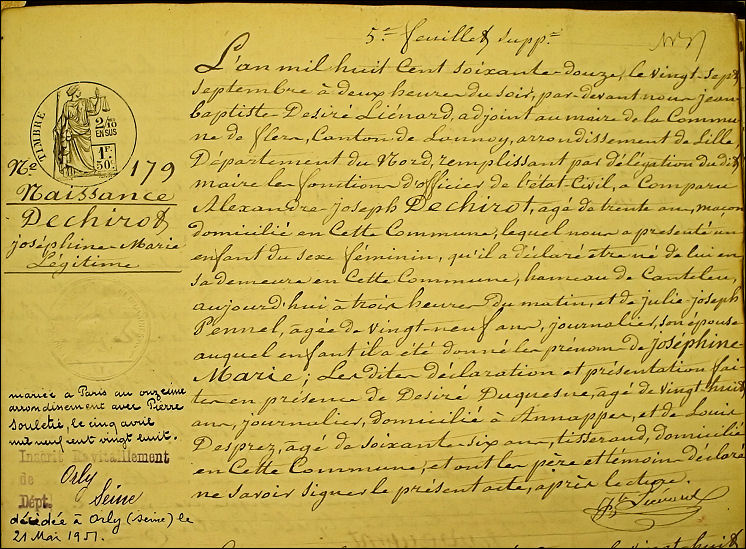 5e feuillet suppre
TIMBRE
2/10
EN SUS
1F.
50c.
No 179
Naissance
Dechirot
joséphine Marie
Légitime
L'an mil huit cent soixante-douze, le vingt-sept
septembre à deux heures du soir, par-devant nous jean
baptiste Desiré Liénard, adjoint au maire de la Commu
ne de flers, Canton de Lannoy, arrondissement de Lille,
Département du Nord, remplissant par délégation du dit
maire les fonctions d'officier de l'état-Civil, a Comparu
Alexandre joseph Dechirot, agé de trente ans, maçon
domicilié en Cette Commune, lequel nous a présenté un
enfant du sexe féminin, qu'il a déclaré être né de lui en
sa demeure en Cette Commune, hameau de Canteleu,
aujourd'hui à trois heures du matin, et de julie-joseph
Pennel, agée de vingt-neuf ans, journalière, son épouse
auquel enfant il a été donné les prénoms de Joséphine
Marie; Les dites déclaration et présentation fai-
tes en présence de Desiré Duquesne, agé de vingt-huit
ans, journalier, domicilié à Annappes, et de Louis
Desprez, agé de soixante-six ans, tisserand, domicilié
en Cette Commune, et ont les père et témoins déclaré
ne savoir signer le présent acte, après lecture.
Liénard
mariée à Paris au onzième
arrondissement avec Pierre
Souletié, le cinq avril
mil neuf cent vingt huit.
Inscrit Ravitaillement
de Orly
Dépt. Seine
décédée à Orly (Seine) le
21 Mai 1951.